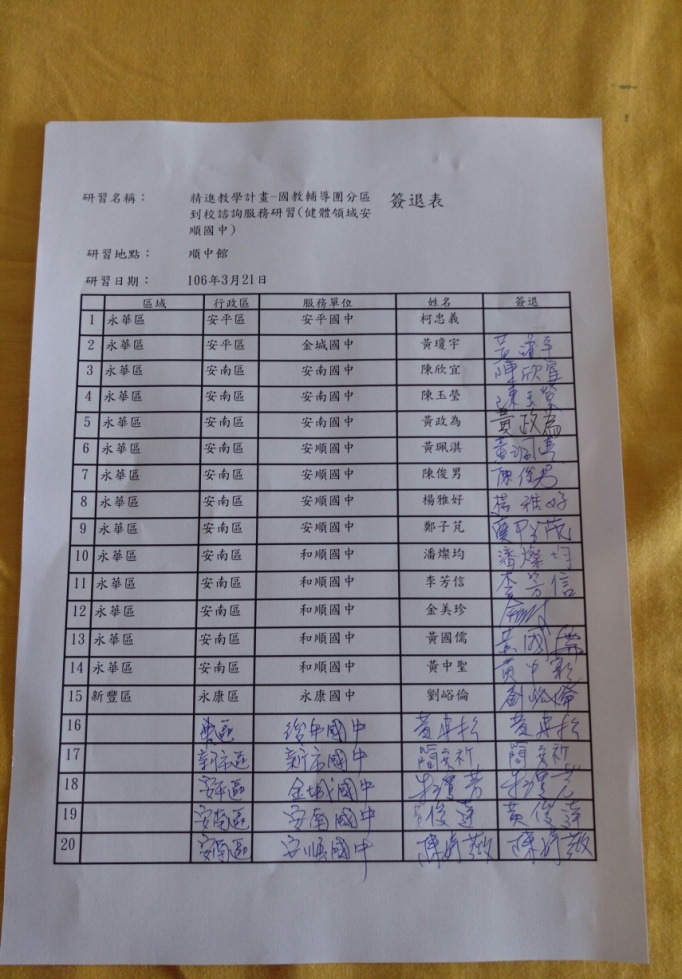 研習名稱： 精進教學計畫-國教輔導團分區 簽退表
到校諮詢服務研習(健體領域安
順國中)
研習地點： 順中館
研習日期： 106年3月21日
區域 行政區 服務單位 姓名 簽退
1 永華區 安平區 安平國中 柯忠義
2 永華區 安平區 金城國中 黃瓊宇 黃瓊宇
3 永華區 安南區 安南國中 陳欣宜 陳欣宜
4 永華區 安南區 安南國中 陳玉瑩 陳玉瑩
5 永華區 安南區 安南國中 黃政為 黃政為
6 永華區 安南區 安順國中 黃珮淇 黃珮淇
7 永華區 安南區 安順國中 陳俊男 陳俊男
8 永華區 安南區 安順國中 楊雅好 楊雅好
9 永華區 安南區 安順國中 鄭子芃
10 永華區 安南區 和順國中 潘燦均 潘燦均
11 永華區 安南區 和順國中 李芳信 李芳信
12 永華區 安南區 和順國中 金美珍
13 永華區 安南區 和順國中 黃國儒 黃國儒
14 永華區 安南區 和順國中 黃中聖
15 新豐區 永康區 永康國中 劉峪倫 劉峪倫
16 東區 國中
17 新市區 新市國中
18 安平區 金城國中
19 安南區 安南國中 俊達 黃俊達
20 安南區 安順國中